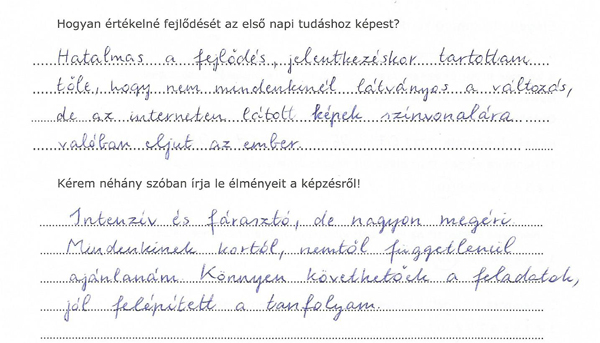 Hogyan értékelné fejlődését az első napi tudáshoz képest?
Hatalmas a fejlődés, jelentkezéskor tartottam
tőle, hogy nem mindenkinél látványos a változás,
de az interneten látott képek színvonalára
valóban eljut az ember.
Kérem néhány szóban írja le élményeit a képzésről!
Intenzív és fárasztó, de nagyon megéri.
Mindenkinek kortól, nemtől függetlenül
ajánlanám. Könnyen követhetőek a feladatok,
jól felépített a tanfolyam.